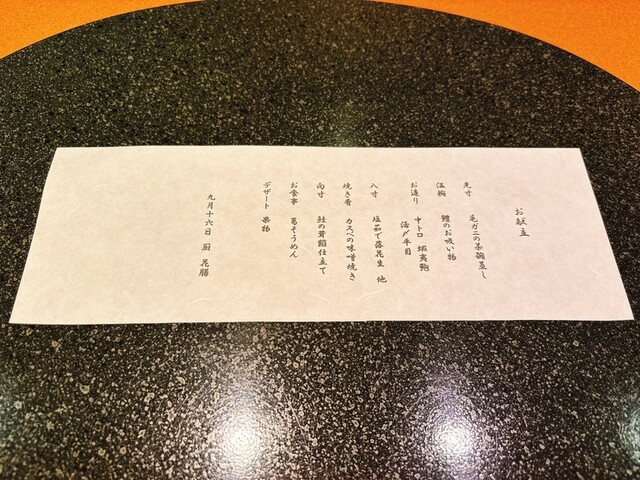 お献立
先寸 毛ガニの茶碗蒸し
温椀 鱧のお吸い物
お造り 中トロ 蝦夷鮑
活〆平目
八寸 塩茹で落花生 他
焼き肴 カスベの味噌焼き
向寸 鮭の茸餡仕立て
お食事 葛そうめん
デザート 果物
九月十六日 厨 花膳